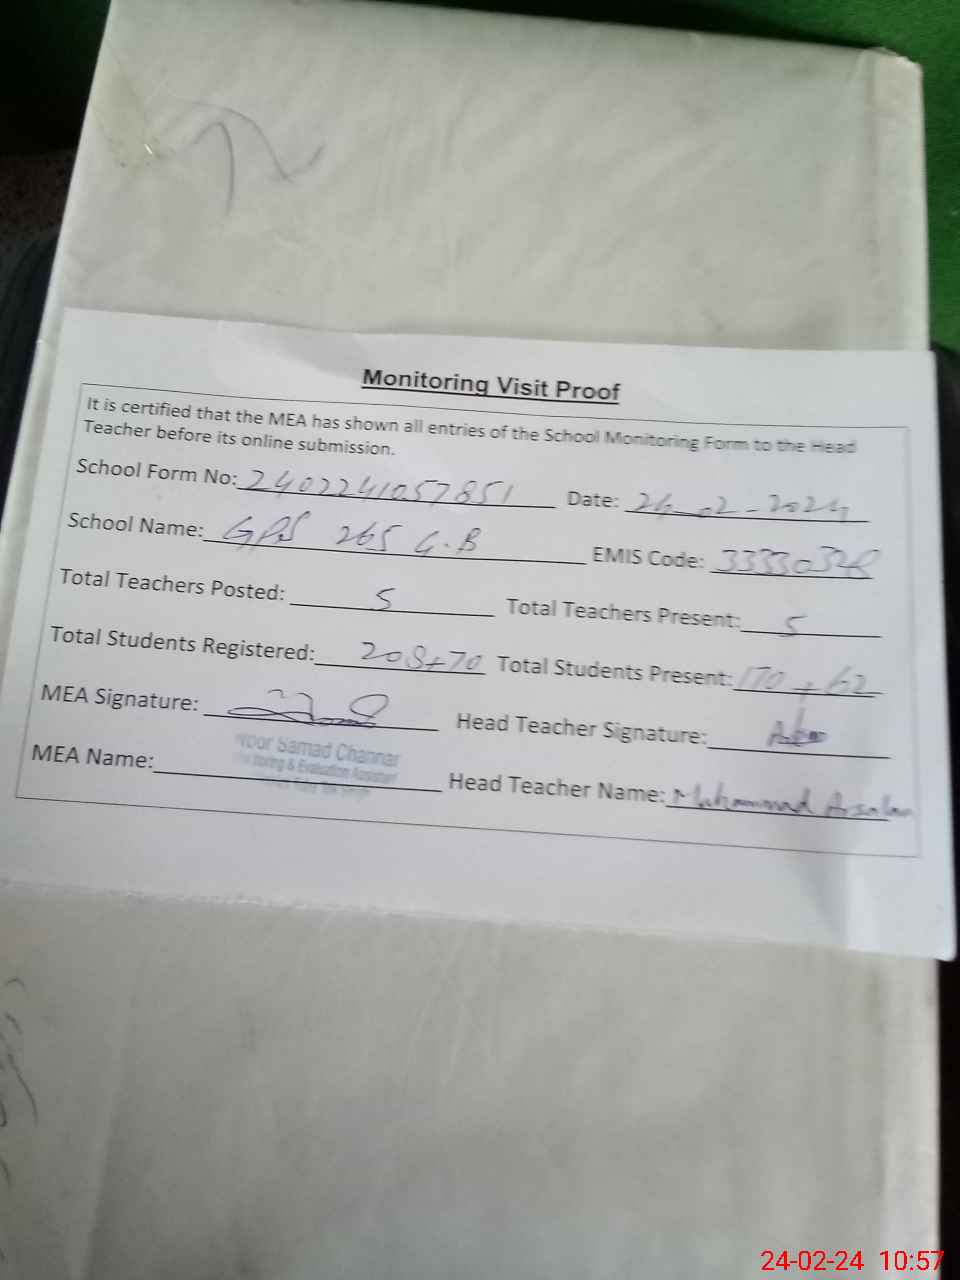 Monitoring Visit Proof
It is certified that the MEA has shown all entries of the School Monitoring Form to the Head
Teacher before its online submission.
School Form No: 2402241057851 Date: 24-02-2024
School Name: GPS 265 G.B EMIS Code: 33330328
Total Teachers Posted: 5 Total Teachers Present: 5
Total Students Registered: 208+70 Total Students Present: 170+62
MEA Signature: Head Teacher Signature:
Noor Samad Channar
Monitoring & Evaluation Assistant
MEA Name: Head Teacher Name: Muhammad Arsalan
24-02-24 10:57